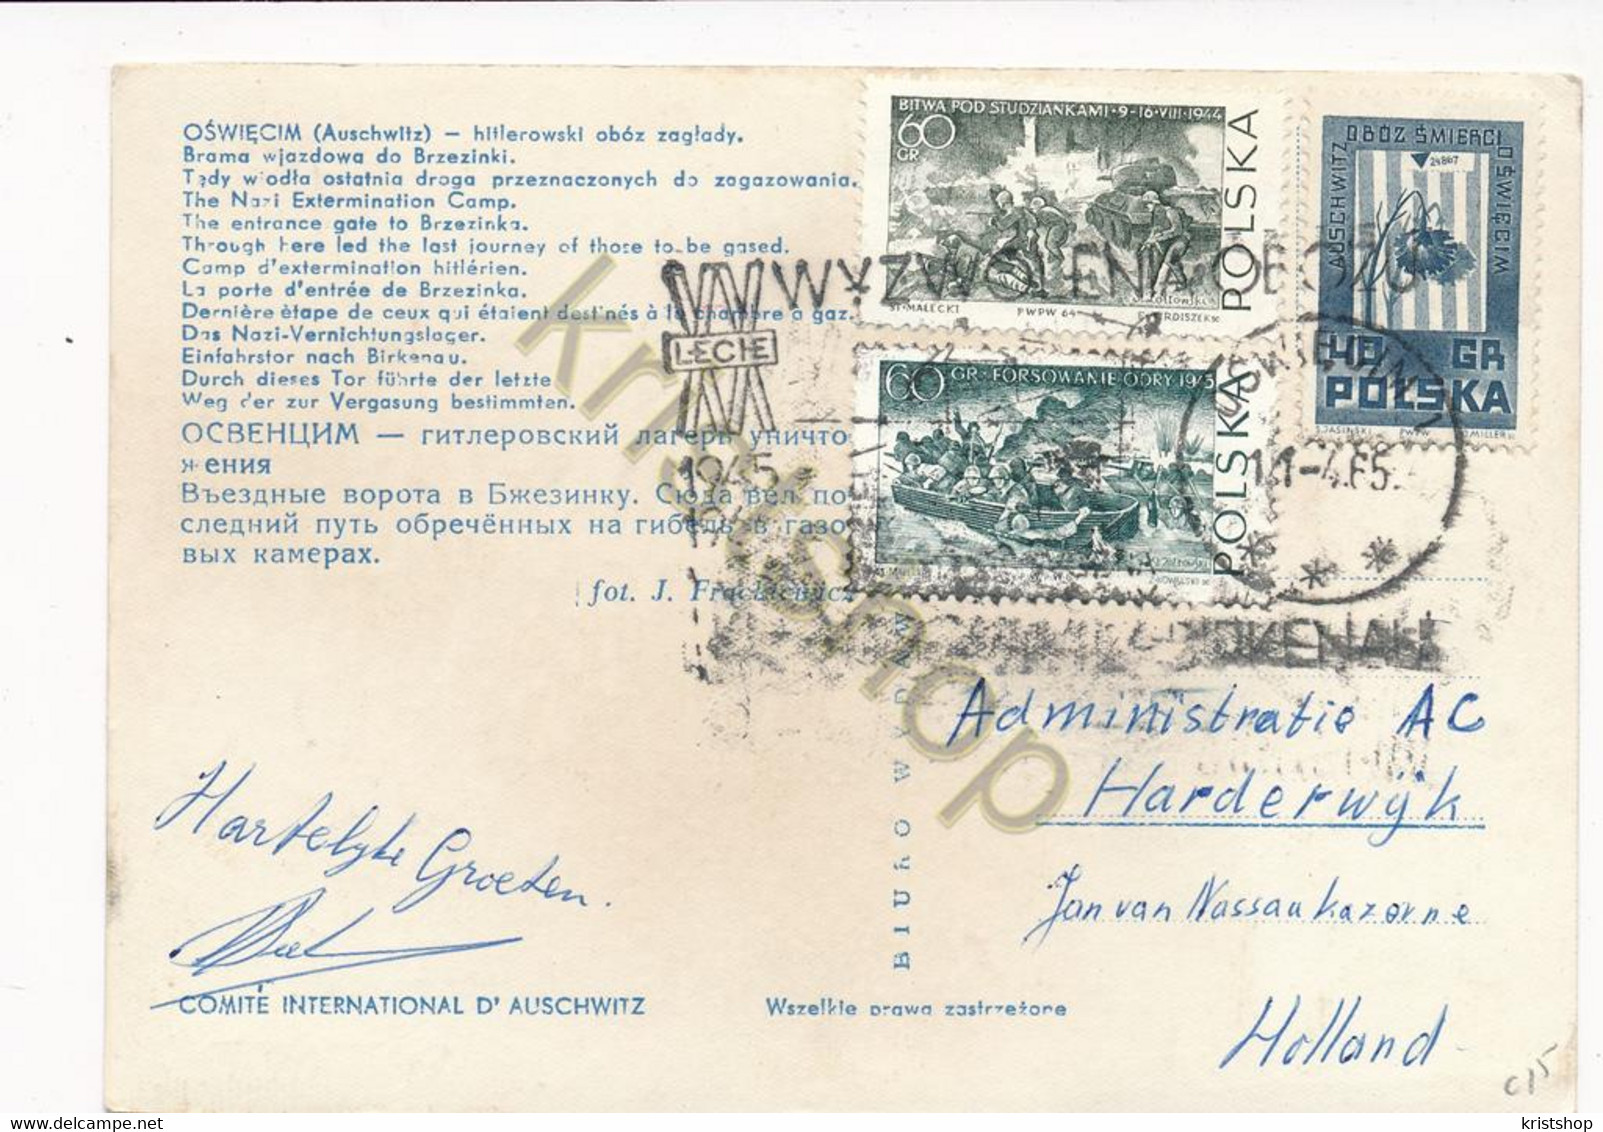 OŚWIĘCIM (Auschwitz) — hitlerowski obóz zagłady.
Brama wjazdowa do Brzezinki.
Tędy wiodła ostatnia droga przeznaczonych do zagazowania.
The Nazi Extermination Camp.
The entrance gate to Brzezinka.
Through here led the last journey of those to be gased.
Camp d'extermination hitlérien.
La porte d'entrée de Brzezinka.
Dernière ètape de ceux qui étaient destinés à la chambre a gaz.
Das Nazi-Vernichtungslager.
Einfahrstor nach Birkenau.
Durch dieses Tor führte der letzte
Weg der zur Vergasung bestimmten.
ОСВЕНЦИМ — гитлеровский лагерь уничто
жения
Въездные ворота в Бжезинку. Сюда вел по
следний путь обречённых на гибель в газо
вых камерах.
fot. J. Frąckiewicz
BITWA POD STUDZIANKAMI · 9-16 · VIII · 1944
60
GR
POLSKA
ST. MAŁECKI PWPW 64
60 GR · FORSOWANIE ODRY 1945
POLSKA
AUSCHWITZ OBÓZ ŚMIERCI OŚWIĘCIM
24867
40 GR
POLSKA
S. JASIŃSKI PWPW D. MILLER SC
XX WYZWOLENIA OBOZU
LECIE
1945
OŚWIĘCIM 1
-4.65
BIRKENAU
Administratie AC
Harderwijk
Jan van Nassaukazerne
Holland
Hartelyke Groeten.
BIURO WYDAW
COMITÉ INTERNATIONAL D' AUSCHWITZ
Wszelkie prawa zastrzeżone
c15
kristshop
kristshop